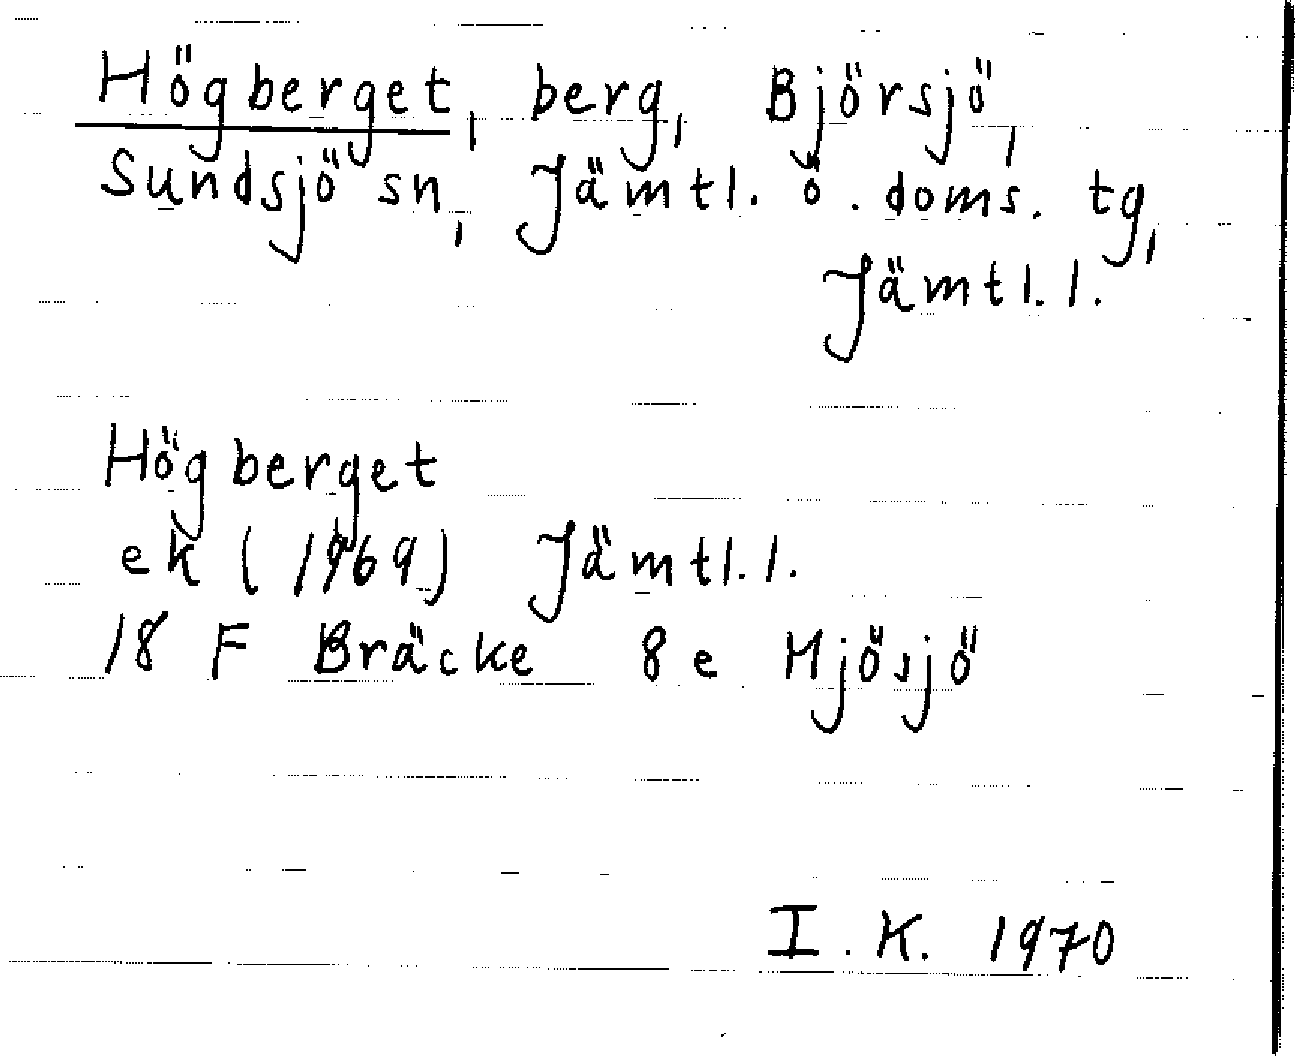 Högberget, berg, Björsjö,
Sundsjö sn, Jämtl. ö. doms. tg,
Jämtl. l.
Högberget
ek (1969) Jämtl. l.
18 F Bräcke 8 e Mjösjö
I. K. 1970